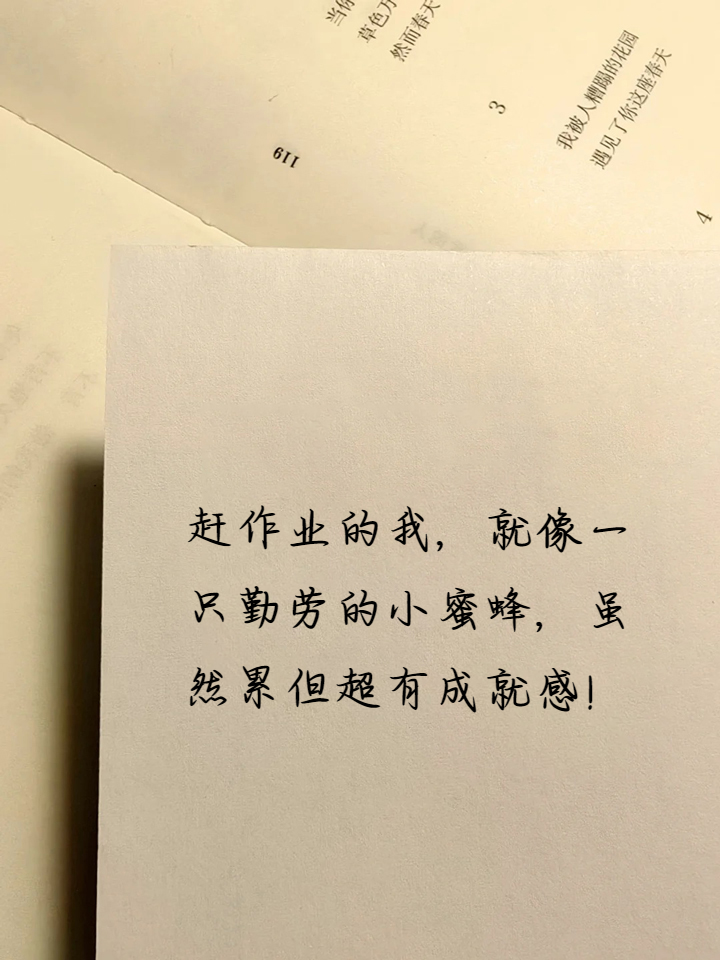 当你
草色万
然而春天
3
我被人糟蹋的花园
遇见了你这座春天
4
119
赶作业的我，就像一
只勤劳的小蜜蜂，虽
然累但超有成就感！